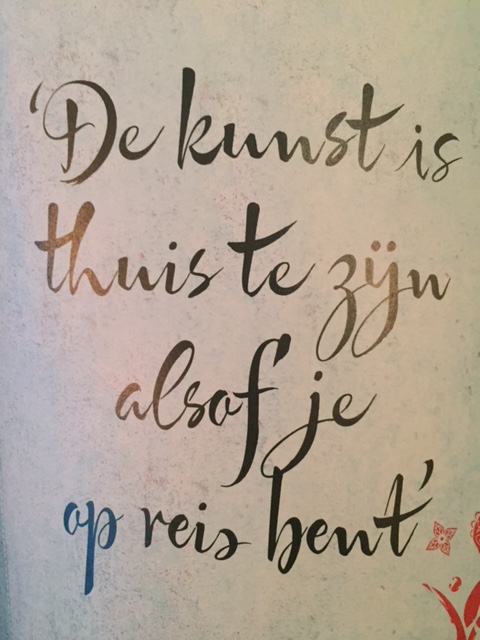 'De kunst is
thuis te zijn
alsof je
op reis bent'